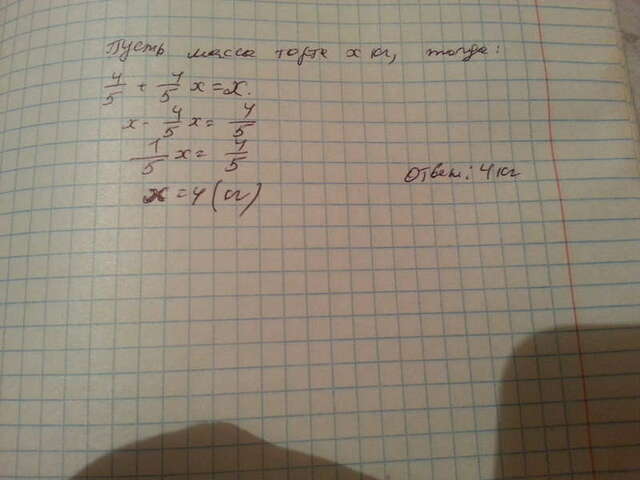 Пусть масса торта x кг, тогда:
4/5 + 4/5 x = x.
x - 4/5 x = 4/5
1/5 x = 4/5
x = 4 (кг)
Ответ: 4 кг